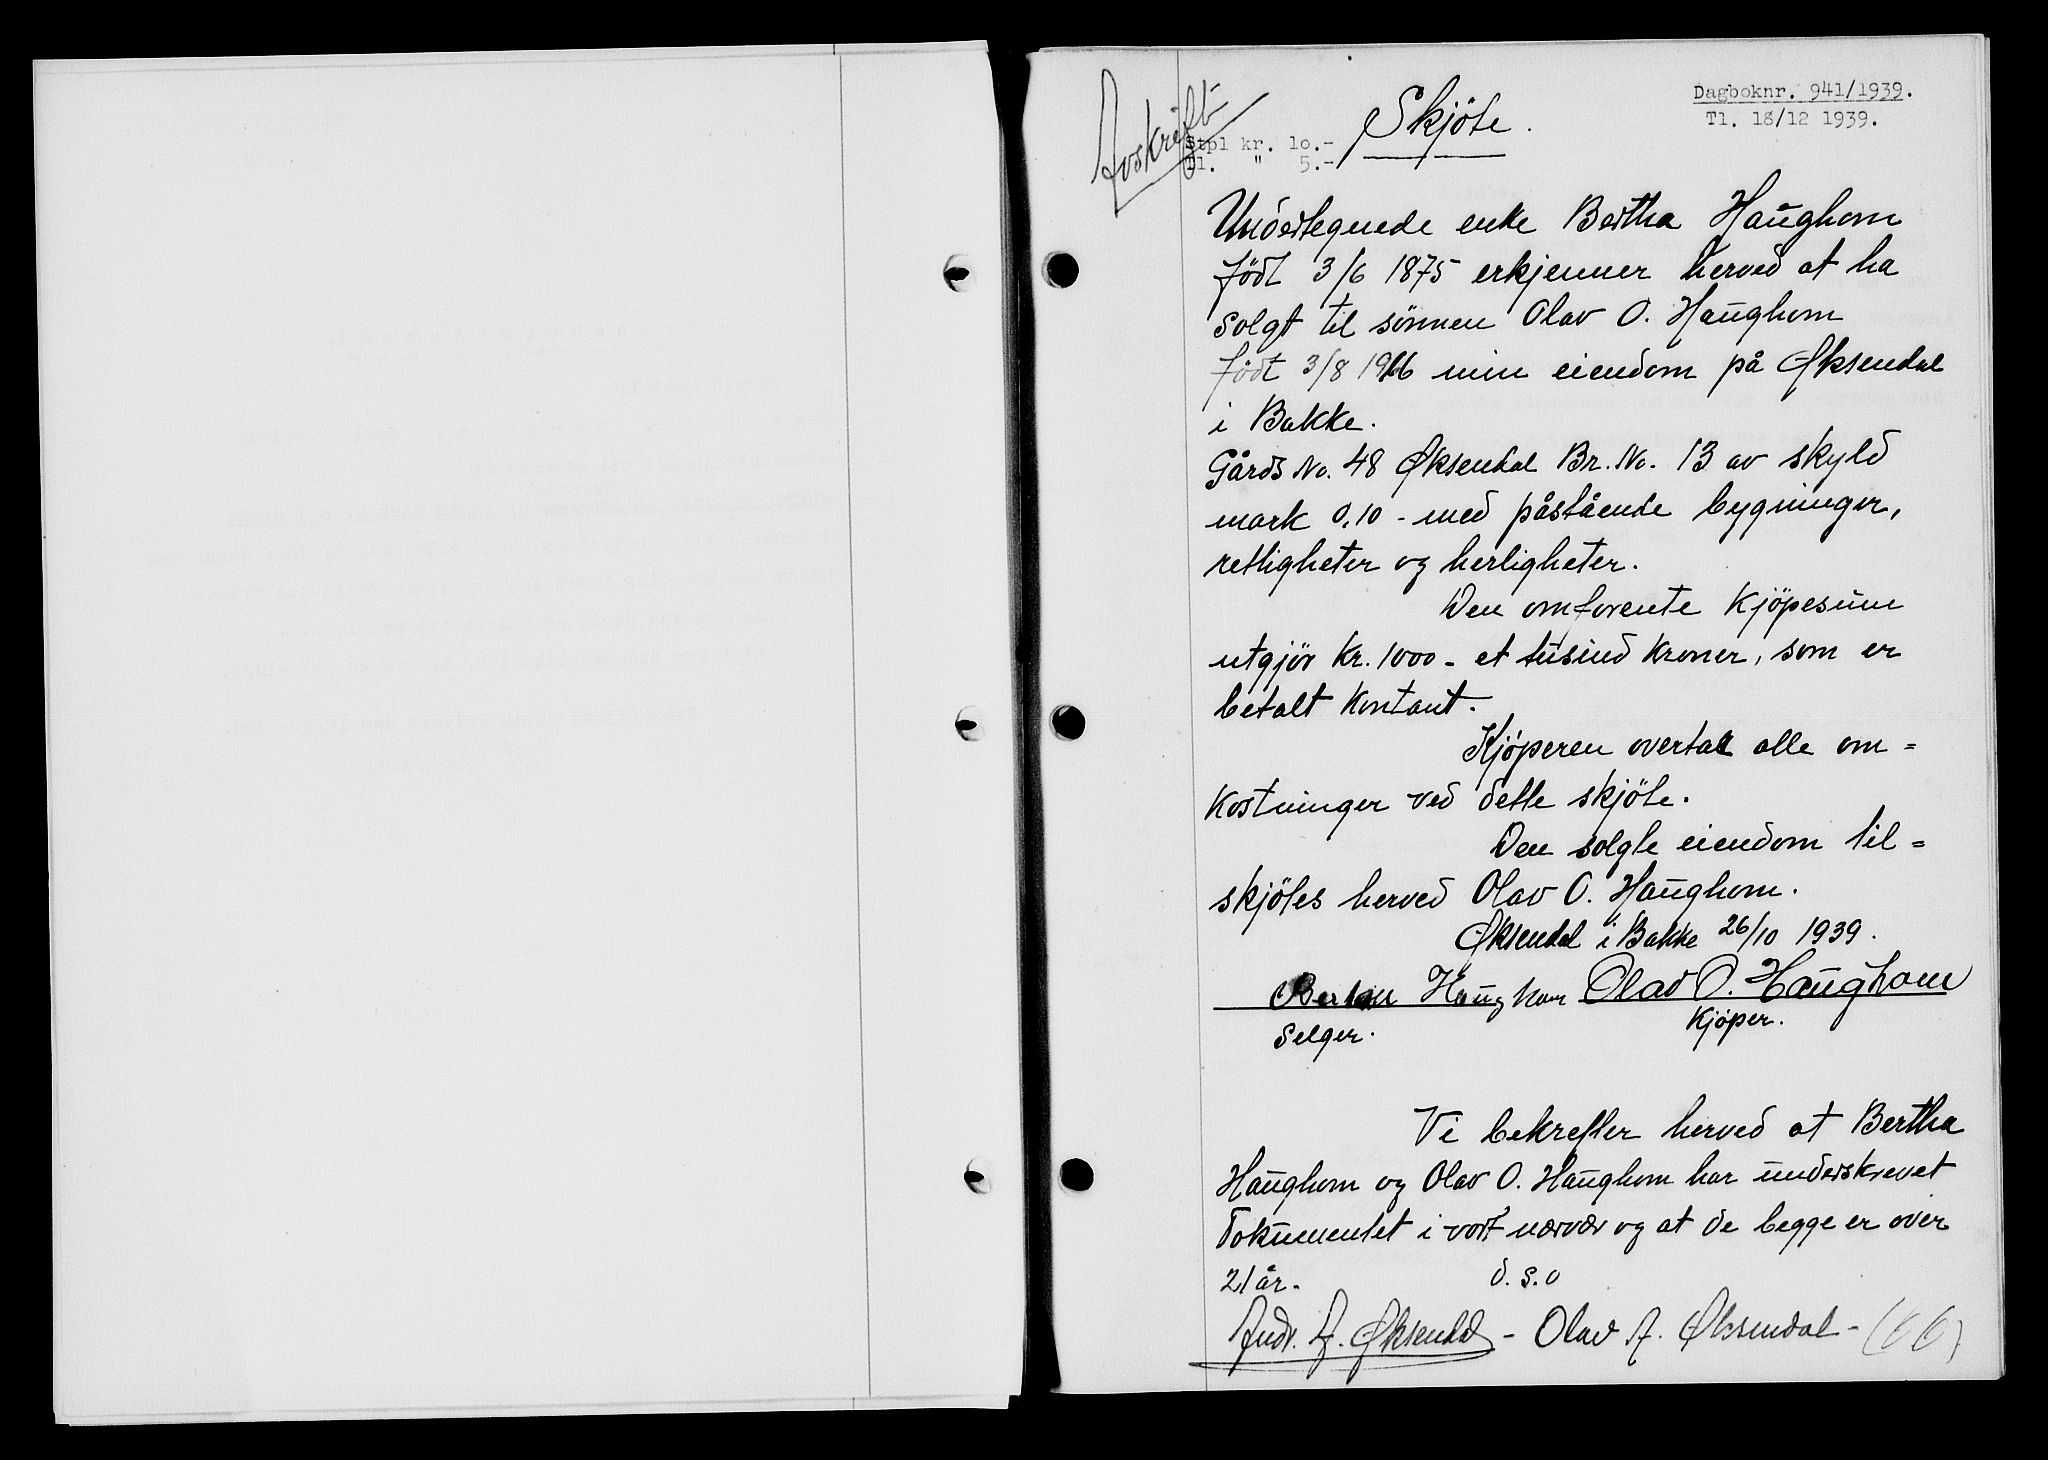 Dagboknr. 941/1939.
Tl. 18/12 1939.
Avskrift
Stpl kr. lo.-
Tl. " 5.-
Skjöte.
Undertegnede enke Bertha Haughom
født 3/6 1875 erkjenner herved at ha
solgt til sönnen Olav O. Haughom
født 3/8 1916 min eiendom på Øksendal
i Bakke.
Gårds No. 48 Øksendal Br. No. 13 av skyld
mark 0,10 - med påstående bygninger,
rettigheter og herligheter.
Den omforente Kjöpesum
utgjör Kr. 1000 - et tusind Kroner, som er
betalt Kontant.
Kjöperen overtar alle om=
Kostninger ved dette skjöte.
Den solgte eiendom til=
skjötes herved Olav O. Haughom.
Øksendal i Bakke 26/10 1939.
Bertha Haughom Olav O. Haughom
Selger. Kjöper.
Vi bekrefter herved at Bertha
Haughom og Olav O. Haughom har underskrevet
Dokumentet i vort nærvær og at de begge er over
21 år. d.s.o
Andr. A. Øksendal - Olav A. Øksendal - (66)